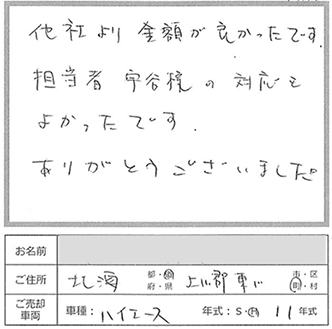 他社より金額が良かったです.
担当者 守谷様の対応も
よかったです.
ありがとうございました
お名前
ご住所 北海 都・道 府・県 上川郡東川 市・区 町・村
ご売却車両 車種：ハイエース 年式：S・H 11年式